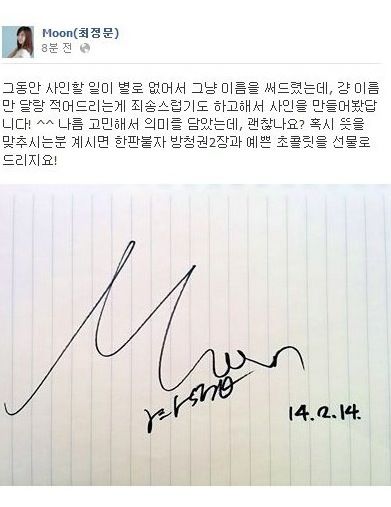 Moon(최정문)
8분 전
그동안 사인할 일이 별로 없어서 그냥 이름을 써드렸는데, 걍 이름
만 달랑 적어드리는게 죄송스럽기도 하고해서 사인을 만들어봤답
니다! ^^ 나름 고민해서 의미를 담았는데, 괜찮나요? 혹시 뜻을
맞추시는분 계시면 한판붙자 방청권2장과 예쁜 초콜릿을 선물로
드리지요!
Moon
14.2.14.